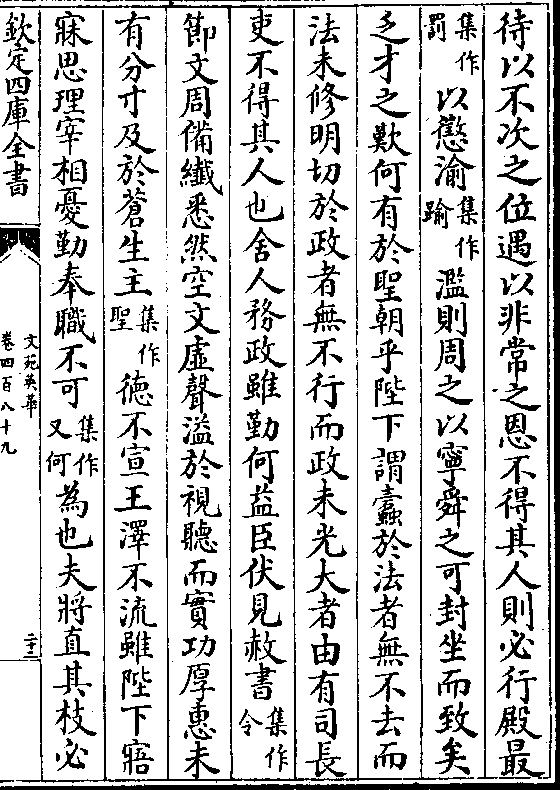 待以不次之位遇以非常之恩不得其人則必行殿最
集作罰以懲渝集作踰濫則周之以寧舜之可封坐而致矣
乏才之歎何有於聖朝乎陛下謂蠹於法者無不去而
法未修明切於政者無不行而政未光大者由有司長
吏不得其人也舍人務政雖勤何益臣伏見赦書集作令
節文周備纖悉然空文虛聲溢於視聽而實功厚惠未
有分寸及於蒼生主集作聖德不宣王澤不流雖陛下寤
寐思理宰相憂勤奉職不可集作又何為也夫將直其枝必
欽定四庫全書
文苑英華
卷四百八十九
二十三